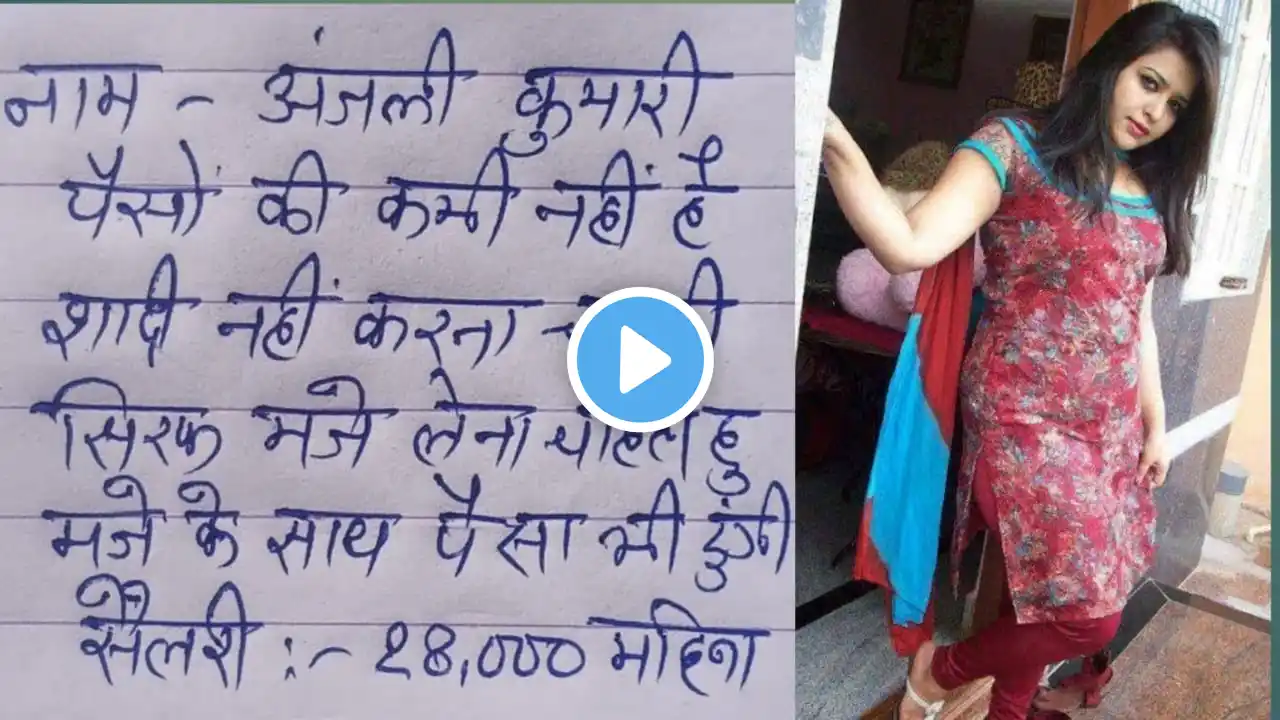 नाम - अंजली कुमारी
पैसों की कमी नहीं है
शादी नहीं करना
सिरफ मजे लेना चाहती हु
मजे के साथ पैसा भी दुंगी
सैलरी :- 28,000 महिना